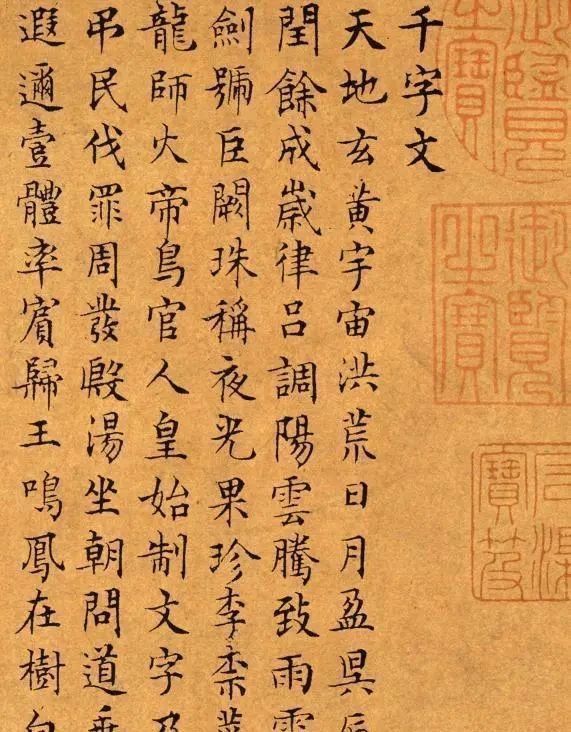 千字文
天地玄黃宇宙洪荒日月盈昃辰
閏餘成歲律呂調陽雲騰致雨露
劍號巨闕珠稱夜光果珍李柰菜
龍師火帝鳥官人皇始制文字乃
弔民伐罪周發殷湯坐朝問道垂
遐邇壹體率賓歸王鳴鳳在樹白
御覽之寶
石渠寶笈